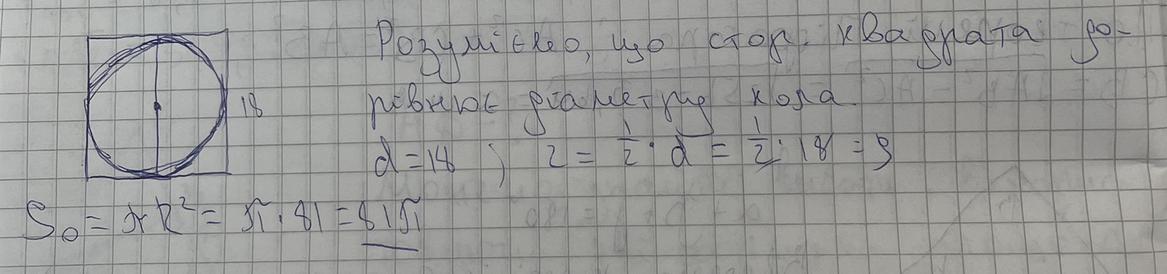 Розуміємо, що стор. квадрата до-
рівнює діаметру кола.
18
d = 18 ; r = 1/2 · d = 1/2 · 18 = 9
S₀ = πR² = π · 81 = 81π